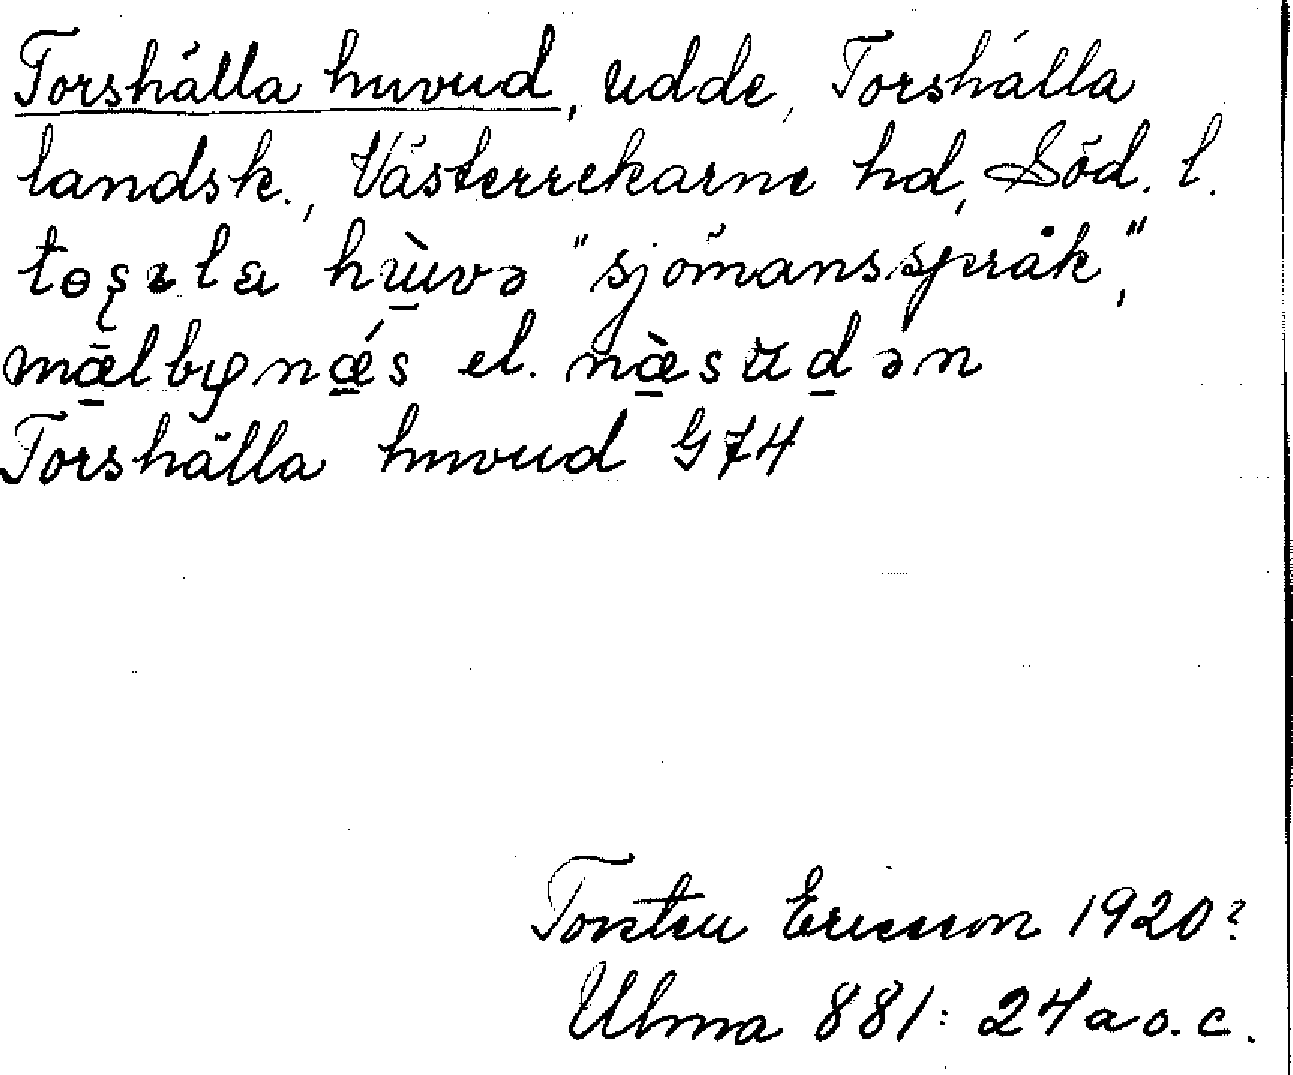 Torshälla huvud, udde, Torshälla
landsk., Västerrekarne hd, Söd. l.
huvə "sjömansspråk",
el.
Torshälla huvud G74
Torsten Ericsson 1920?
Ulma 881: 24 a o. c.